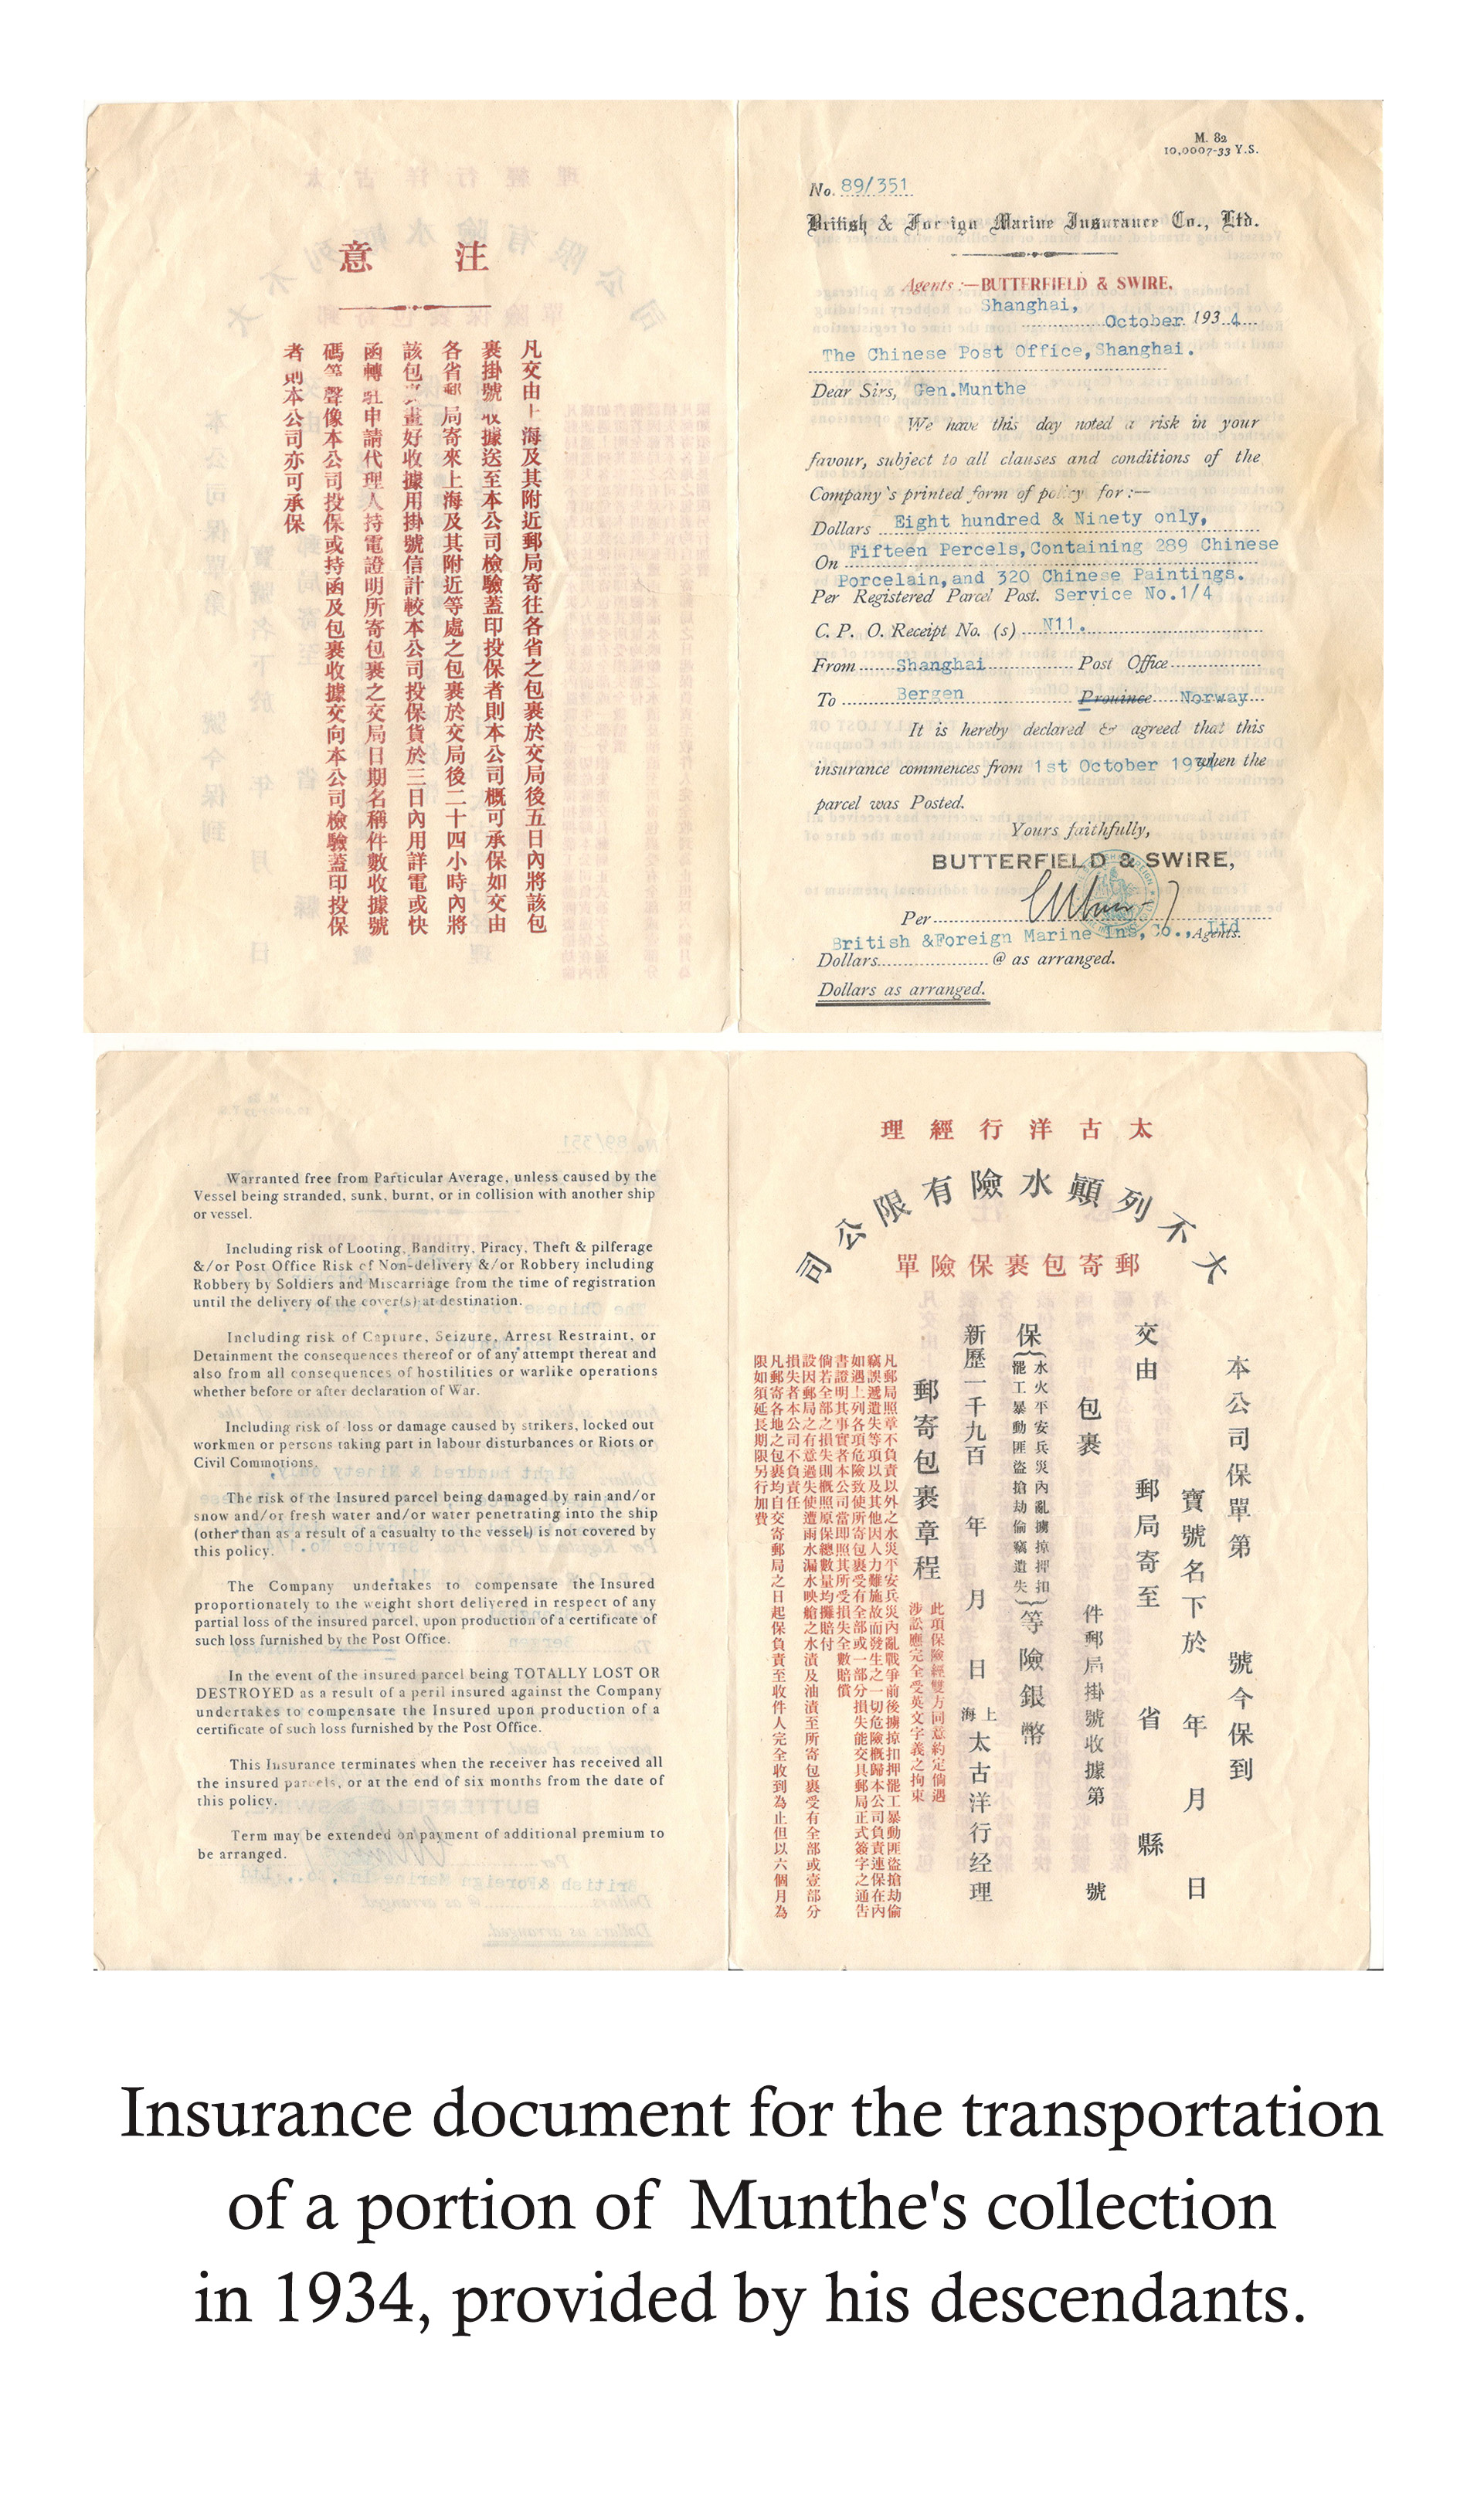 注意
凡交由上海及其附近郵局寄往各省之包裹於交局後五日內將該包
裹掛號收據送至本公司檢驗蓋印投保者則本公司概可承保如交由
各省郵局寄來上海及其附近等處之包裹於交局後二十四小時內將
該包裹畫好收據用掛號信計較本公司投保貨於三日內用詳電或快
函轉駐申請代理人持電證明所寄包裹之交局日期名稱件數收據號
碼等聲像本公司投保或持函及包裹收據交向本公司檢驗蓋印投保
者則本公司亦可承保
M. 82
10,0007-33 Y.S.
No. 89/351
British & Foreign Marine Insurance Co., Ltd.
Agents:—BUTTERFIELD & SWIRE,
Shanghai,
October 1934
The Chinese Post Office,Shanghai.
Dear Sirs, Gen.Munthe
We have this day noted a risk in your
favour, subject to all clauses and conditions of the
Company's printed form of policy for:—
Dollars Eight hundred & Ninety only,
On Fifteen Percels,Containing 289 Chinese
Porcelain,and 320 Chinese Paintings.
Per Registered Parcel Post. Service No.1/4
C. P. O. Receipt No. (s) N11.
From Shanghai Post Office
To Bergen Province Norway
It is hereby declared & agreed that this
insurance commences from 1st October 1934 when the
parcel was Posted.
Yours faithfully,
BUTTERFIELD & SWIRE,
Per
British &Foreign Marine Ins,Co.,Ltd Agents.
Dollars @ as arranged.
Dollars as arranged.
Warranted free from Particular Average, unless caused by the
Vessel being stranded, sunk, burnt, or in collision with another ship
or vessel.
Including risk of Looting, Banditry, Piracy, Theft & pilferage
&/or Post Office Risk of Non-delivery &/or Robbery including
Robbery by Soldiers and Miscarriage from the time of registration
until the delivery of the cover(s) at destination.
Including risk of Capture, Seizure, Arrest Restraint, or
Detainment the consequences thereof or of any attempt thereat and
also from all consequences of hostilities or warlike operations
whether before or after declaration of War.
Including risk of loss or damage caused by strikers, locked out
workmen or persons taking part in labour disturbances or Riots or
Civil Commotions.
The risk of the Insured parcel being damaged by rain and/or
snow and/or fresh water and/or water penetrating into the ship
(other than as a result of a casualty to the vessel) is not covered by
this policy.
The Company undertakes to compensate the Insured
proportionately to the weight short delivered in respect of any
partial loss of the insured parcel, upon production of a certificate of
such loss furnished by the Post Office.
In the event of the insured parcel being TOTALLY LOST OR
DESTROYED as a result of a peril insured against the Company
undertakes to compensate the Insured upon production of a
certificate of such loss furnished by the Post Office.
This Insurance terminates when the receiver has received all
the insured parcels, or at the end of six months from the date of
this policy.
Term may be extended on payment of additional premium to
be arranged.
太古洋行經理
大不列顛水險有限公司
郵寄包裹保險單
本公司保單第 號今保到
寶號名下於 年 月 日
交由 郵局寄至 省 縣
包裹 件郵局掛號收據第 號
保{水火平安兵災內亂擄掠押扣
罷工暴動匪盜搶劫偷竊遺失}等險銀幣
新歷一千九百 年 月 日 上海太古洋行经理
郵寄包裹章程
此項保險經雙方同意約定倘遇
涉訟應完全受英文字義之拘束
凡郵局照章不負責以外之水災平安兵災內亂戰爭前後擄掠扣押罷工暴動匪盜搶劫偷
竊誤遞遺失等項以及其他因人力難施故而發生之一切危險概歸本公司負責連保在內
如遇上列各項危險致使所寄包裹受有全部或一部分損失能交具郵局正式簽字之通告
書證明其事實者本公司當即照其所受損失全數賠償
倘若全部之損失則概照原保總數量均攤賠付
設因郵局之有意過失使遭雨水漏水映艙之水漬及油漬至所寄包裹受有全部或壹部分
損失者本公司不負責任
凡郵寄各地之包裹均自交寄郵局之日起保負責至收件人完全收到為止但以六個月為
限如須延長期限另行加費
Insurance document for the transportation
of a portion of Munthe's collection
in 1934, provided by his descendants.